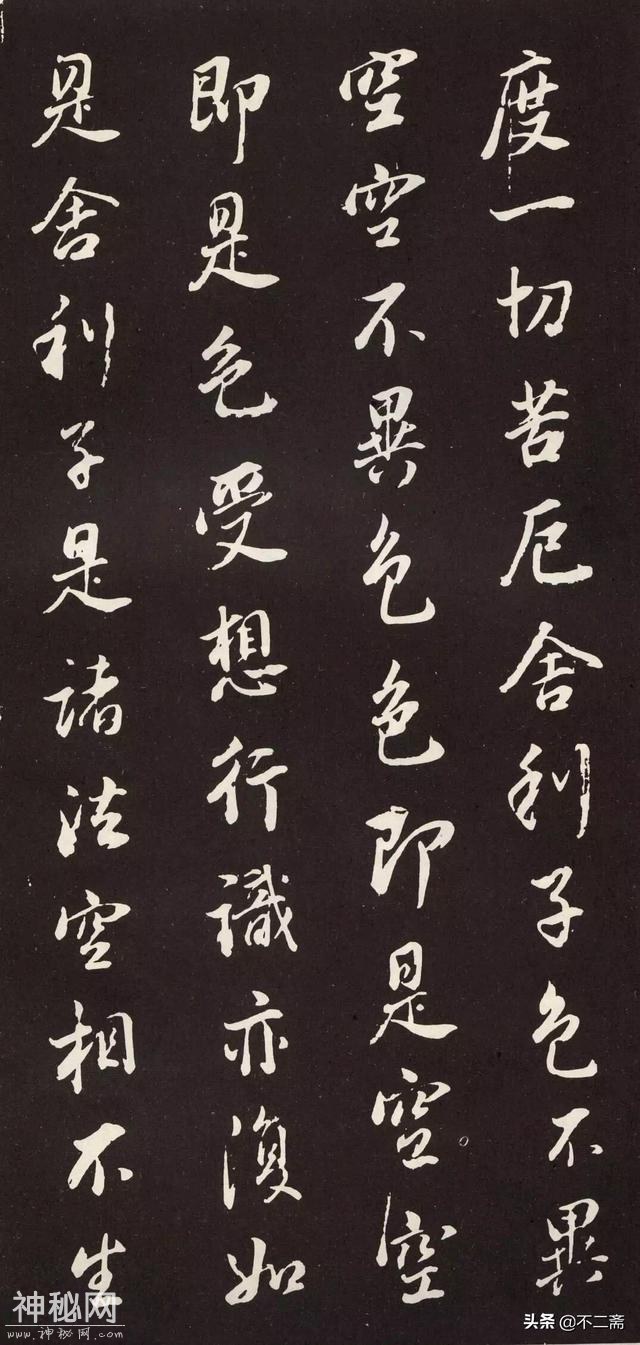 度一切苦厄舍利子色不異
空空不異色色即是空空
即是色受想行識亦復如
是舍利子是諸法空相不生
神秘网
www.神秘网.com
头条@不二斋